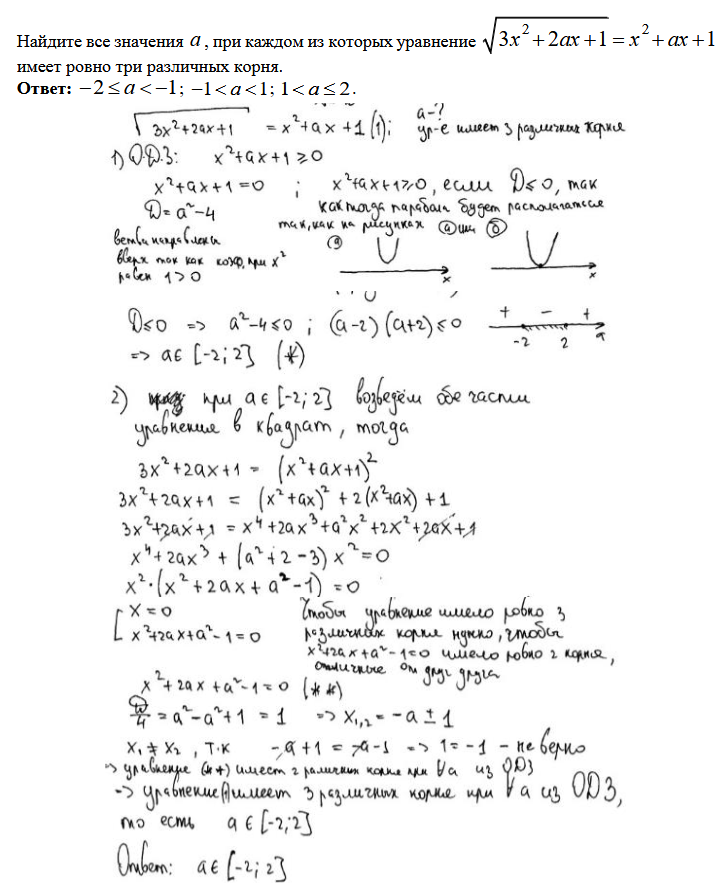 Найдите все значения a, при каждом из которых уравнение √(3x²+2ax+1) = x²+ax+1
имеет ровно три различных корня.
Ответ: −2≤a<−1; −1<a<1; 1<a≤2.
√(3x²+2ax+1) = x²+ax+1 (1); a-?
ур-е имеет 3 различных корня
1) О.Д.З: x²+ax+1⩾0
x²+ax+1=0 ; x²+ax+1⩾0, если D≤0, так
D=a²-4 как тогда парабола будет располагаться
так, как на рисунках (а) или (б)
ветви направлены
вверх так как коэф. при x²
равен 1>0
(а) (б)
x x
D≤0 => a²-4≤0 ; (a-2)(a+2)≤0 + - +
-2 2 a
=> a∈[-2;2] (*)
2) при a∈[-2;2] возведём обе части
уравнения в квадрат, тогда
3x²+2ax+1 = (x²+ax+1)²
3x²+2ax+1 = (x²+ax)²+2(x²+ax)+1
3x²+2ax+1 = x⁴+2ax³+a²x²+2x²+2ax+1
x⁴+2ax³+(a²+2-3)x²=0
x²·(x²+2ax+a²-1)=0
[ x=0 Чтобы уравнение имело ровно 3
x²+2ax+a²-1=0 различных корня нужно, чтобы
x²+2ax+a²-1=0 имело ровно 2 корня,
отличные от друг друга
x²+2ax+a²-1=0 (**)
D/4=a²-a²+1=1 => x₁,₂=-a±1
x₁≠x₂, т.к -a+1=-a-1 => 1=-1 - неверно
=> уравнение (**) имеет 2 различных корня при ∀a из ОДЗ
=> уравнение (1) имеет 3 различных корня при ∀a из ОДЗ,
то есть a∈[-2;2]
Ответ: a∈[-2;2]